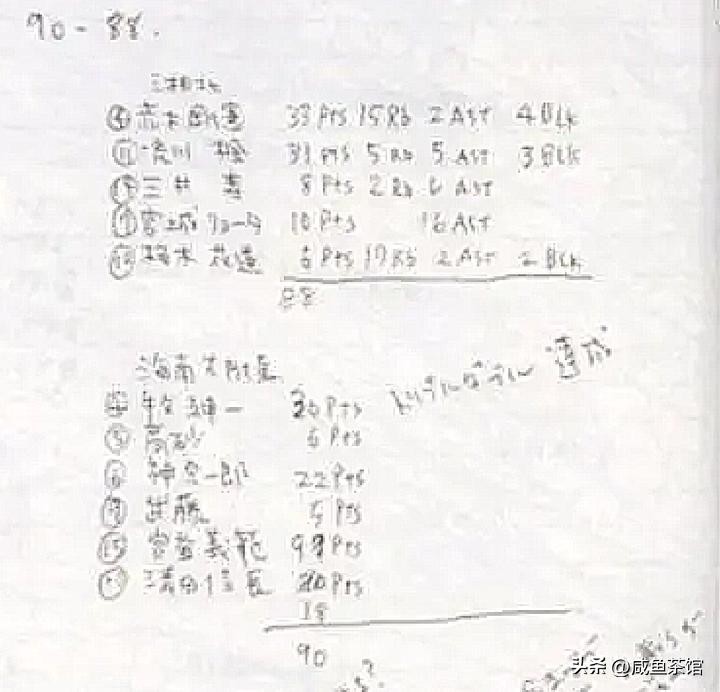 90-88.
湘北
④赤木剛憲 33 Pts 15 Rb 2 Ast 4 Blk
⑪流川 楓 31 Pts 5 Rb 5 Ast 3 Blk
⑭三井 寿 8 Pts 2 Rb 6 Ast
⑦宮城リョータ 10 Pts 16 Ast
⑩桜木 花道 6 Pts 17 Rb 2 Ast 2 Blk
88
海南大附属
④牧 紳一 30 Pts トリプルダブル 達成
⑤高砂 6 Pts
⑥神宗一郎 22 Pts
⑨武藤 5 Pts
⑮宮益義範 9 Pts
⑩清田信長 20 Pts
18
90
头条 @咸鱼茶馆